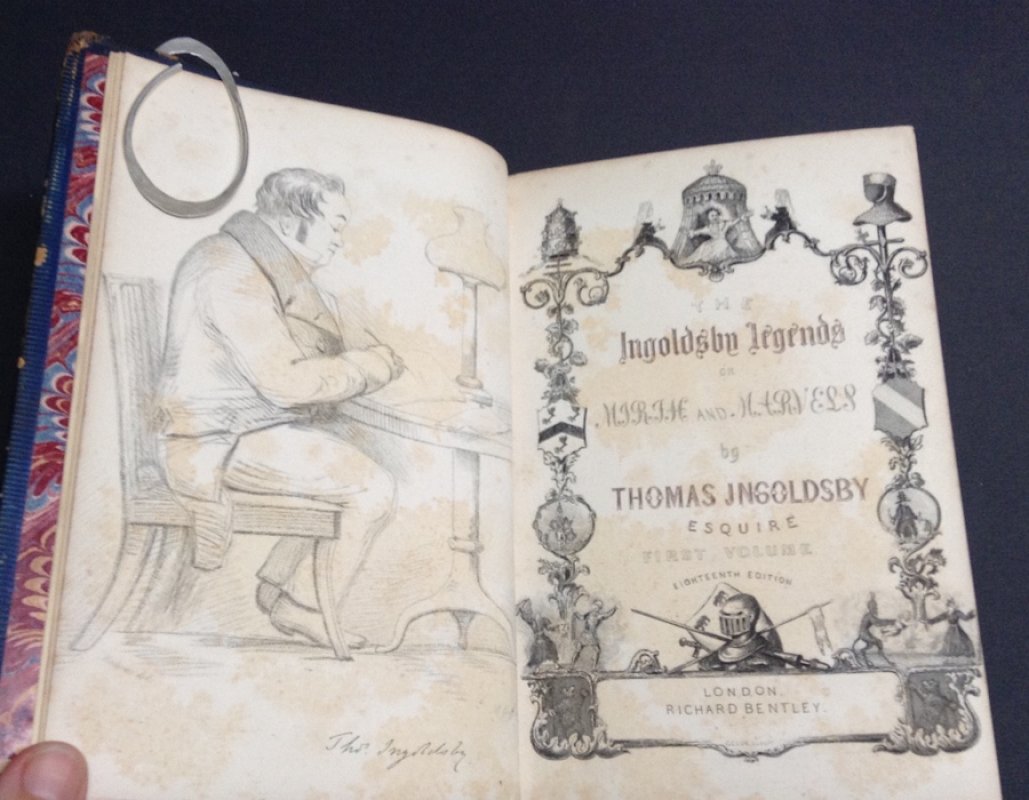 Thos Ingoldsby
THE
Ingoldsby Legends
OR
MIRTH AND MARVELS
by
THOMAS INGOLDSBY
ESQUIRE
FIRST VOLUME
EIGHTEENTH EDITION
LONDON.
RICHARD BENTLEY.